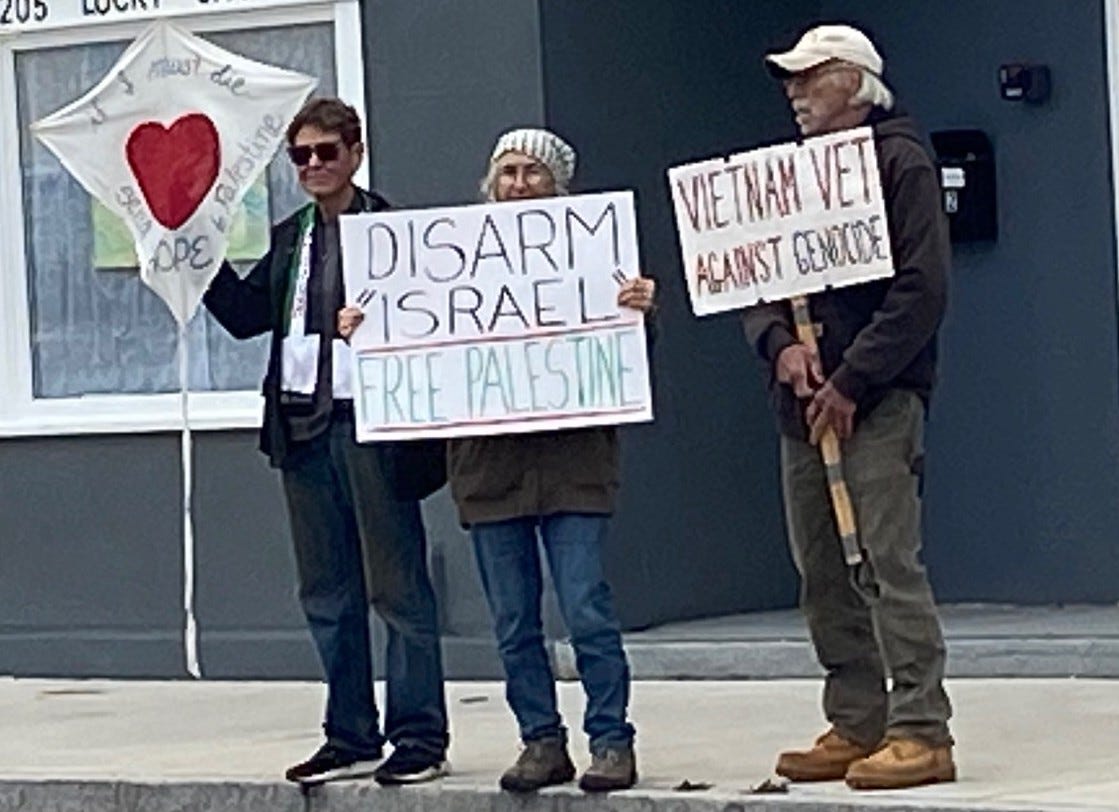 205 LUCKY
if I must die
HOPE
to palestine
DISARM
"ISRAEL"
FREE PALESTINE
VIETNAM VET
AGAINST GENOCIDE
2